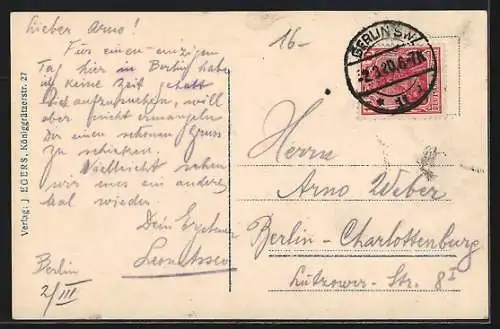 Lieber Arno!
Für einen einzigen
Tag hier in Berlin habe
ich keine Zeit gehabt
Dich aufzusuchen, will
aber nicht ermangeln
Dir einen schönen Gruss
zu schicken.
Vielleicht sehen
wir uns ein anderes
Mal wieder.
Dein Ergebener
Berlin
2/III
Verlag: J. EGERS, Königgrätzerstr. 27
16-
BERLIN S.W.
Herrn
Arno Weber
Berlin-Charlottenburg
Lützower-Str. 8 I